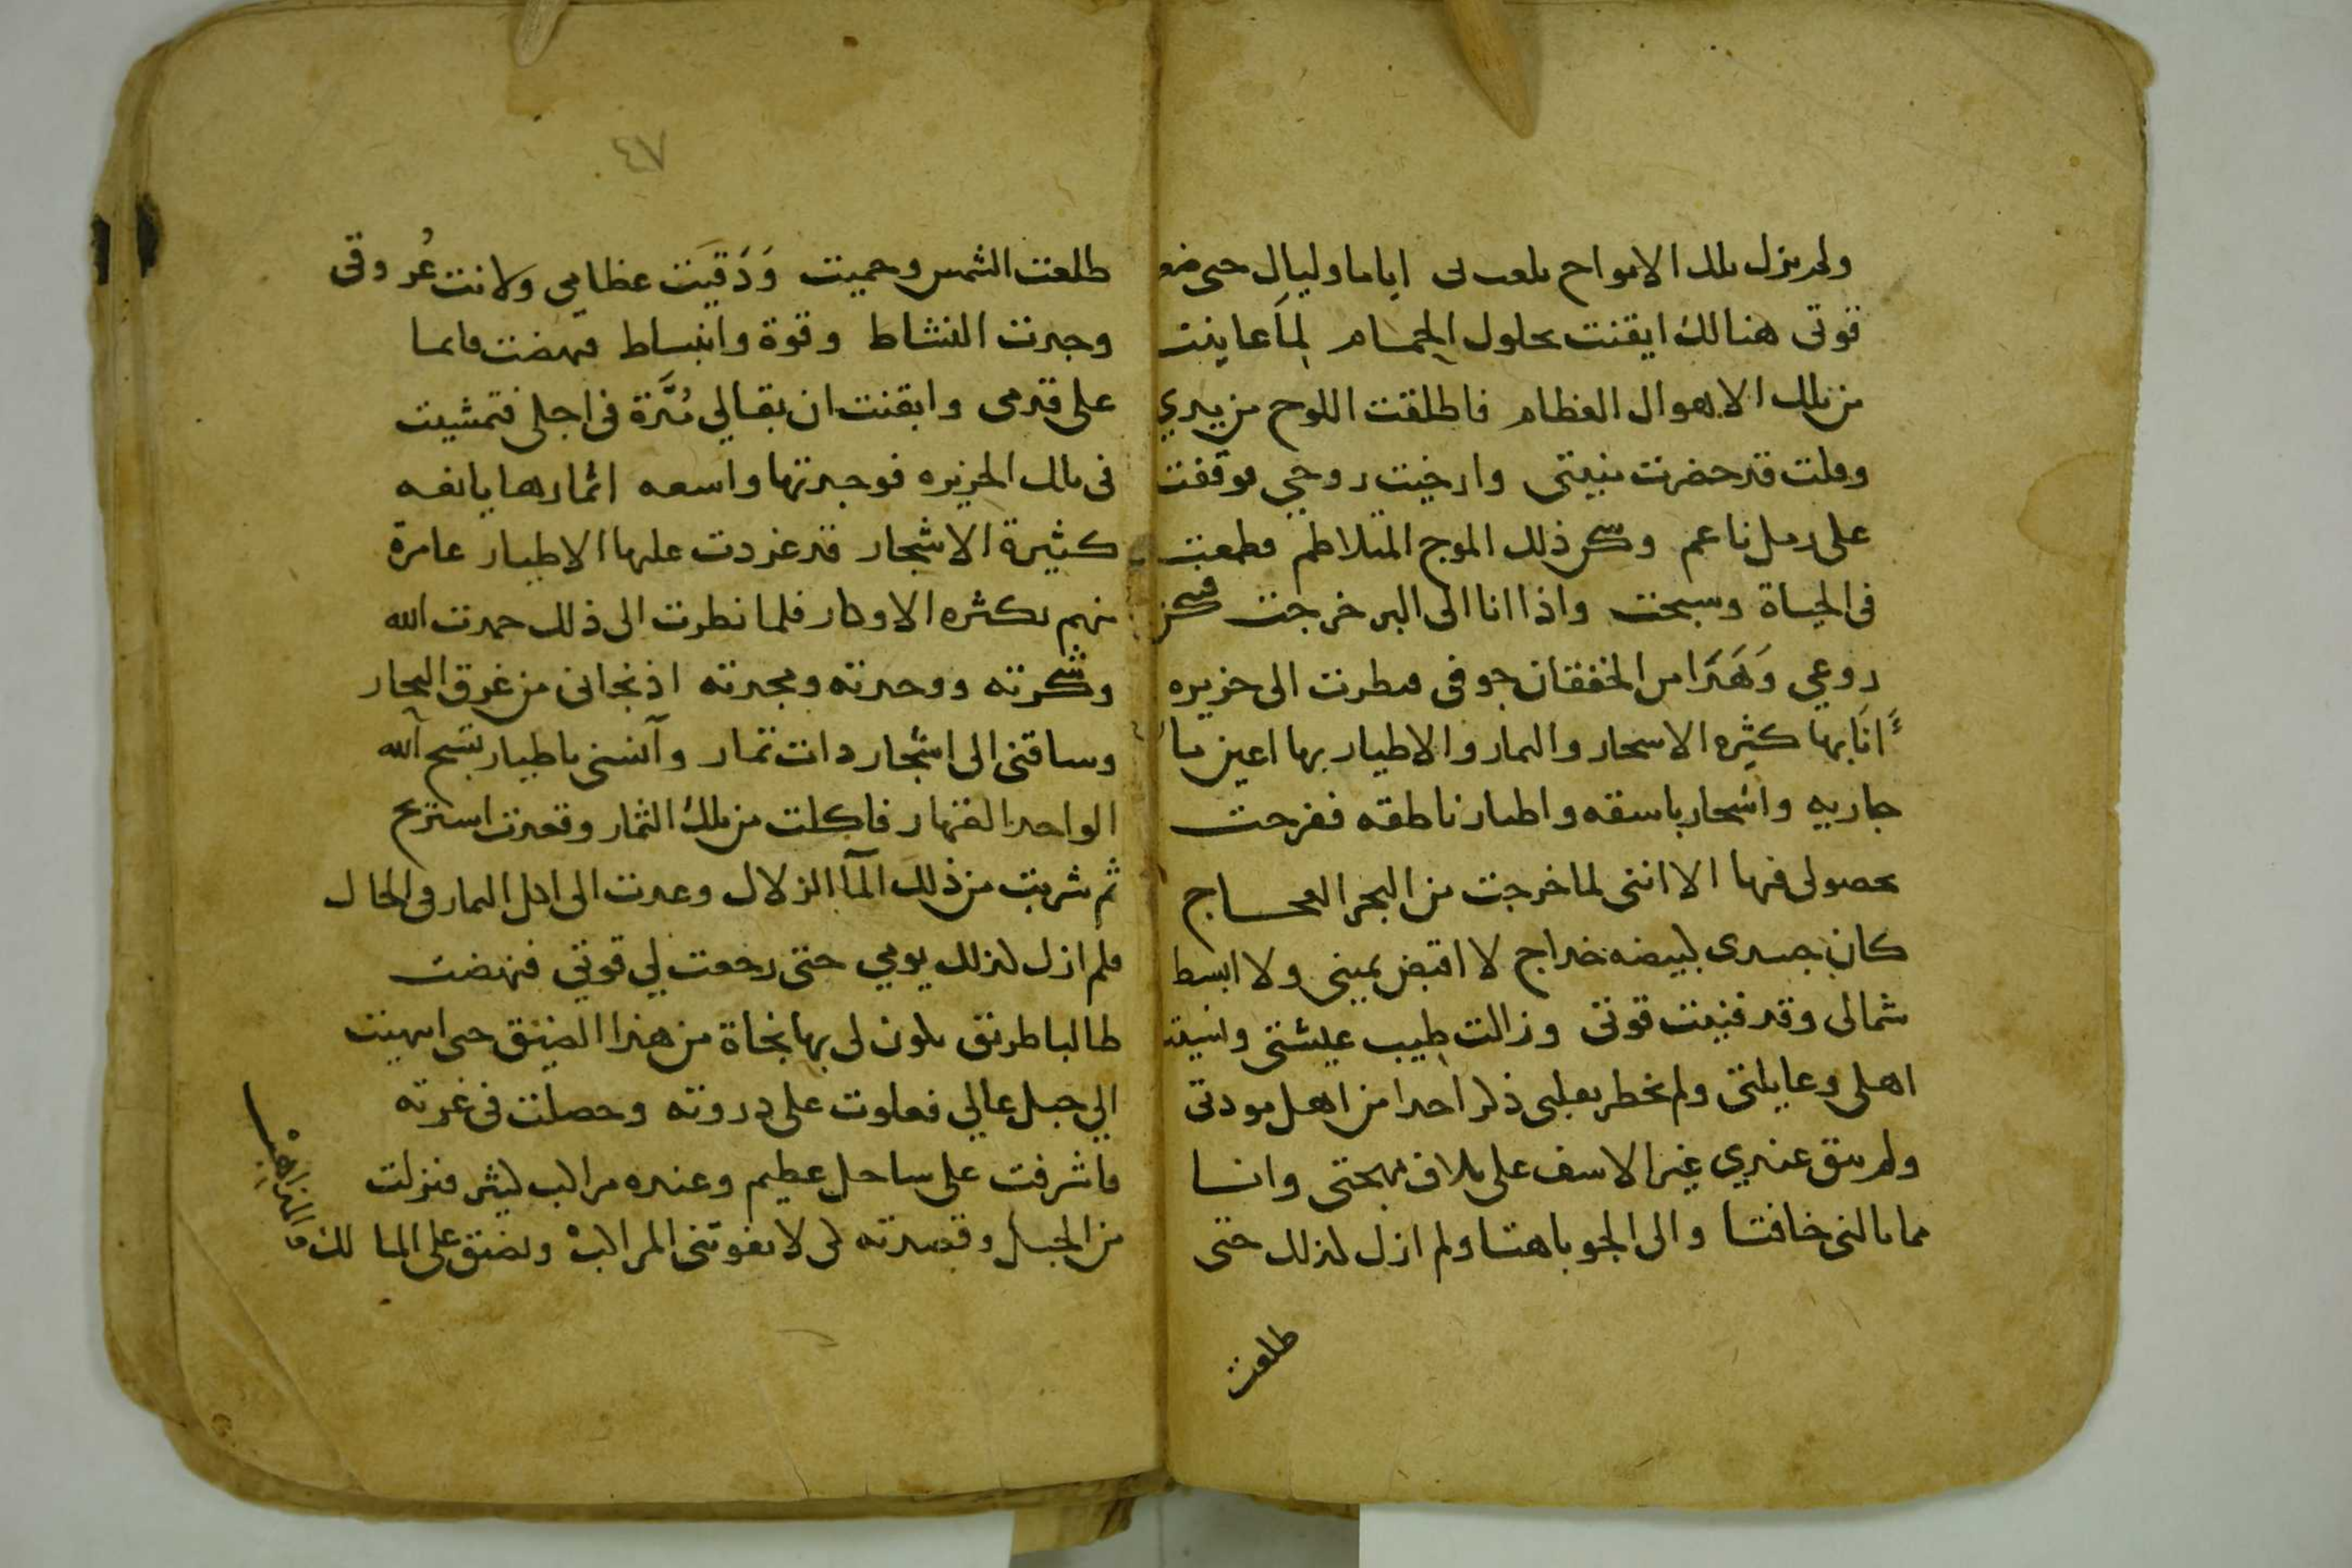 ولم يزل تلك الامواج تلعب بي اياما وليال حتى ضعـ
قوتى هنالك ايقنت بحلول الحمام لما عاينت
من تلك الاهوال العظام فاطلقت اللوح من يدي
وقلت قد حضرت منيتى وارخيت روحي فوقفت
على رمل ناعم وسكن ذلك الموج المتلاطم فطمعت
فى الحياة وسبحت واذا انا الى البر خرجت فسكن
روعي وهدا من الخفقان جوفى فنظرت الى جزيره
انا بها كثيره الاشجار والثمار والاطيار بها اعين ما
جاريه واشجار باسقه واطيار ناطقه ففرحت
بحصولى فيها الا اننى لما خرجت من البحر العجـــاج
كان جسدى لبيضه خداج لا اقبض يمينى ولا ابسط
شمالى وقد فنيت قوتى وزالت طيب عيشتى ونسيت
اهلى وعايلتى ولم يخطر بقلبى ذكر احدا من اهل مودتى
ولم يبق عندي غير الاسف على تلاف مهجتى وانا
مما نالنى خافتا والى الجو باهتا ولم ازل كذلك حتى
طلعت
٤٧
طلعت الشمس وحميت ودقيت عظامي ولانت عُروقى
وجدت النشاط وقوة وانبساط فنهضت قايما
على قدمى وايقنت ان بقالي مُدَّة فى اجلى فتمشيت
فى تلك الجزيره فوجدتها واسعه اثمارها يانعه
كثيرة الاشجار قد غردت عليها الاطيار عامرة
منهم بكثره الاوكار فلما نظرت الى ذلك حمدت الله
وشكرته ووحدته ومجدته اذ نجانى من غرق البحار
وساقنى الى اشجار دات تمار وآنسنى باطيار تسبح الله
الواحد القهار فاكلت من تلك الثمار وقعدت استريح
ثم شربت من ذلك المآ الزلال وعدت الى اكل الثمار فى الحال
فلم ازل كذلك يومي حتى رجعت لي قوتي فنهضت
طالبا طريق يكون لى بها نجاة من هذا الضيق حتى انتهيت
الي جبل عالي فعلوت على دروته وحصلت فى غرته
فاشرفت على ساحل عظيم وعنده مراكب كثير فنزلت
من الجبل وقصدته لى لا تفوتنى المراكب وتضيق على المسالك
والمذاهب